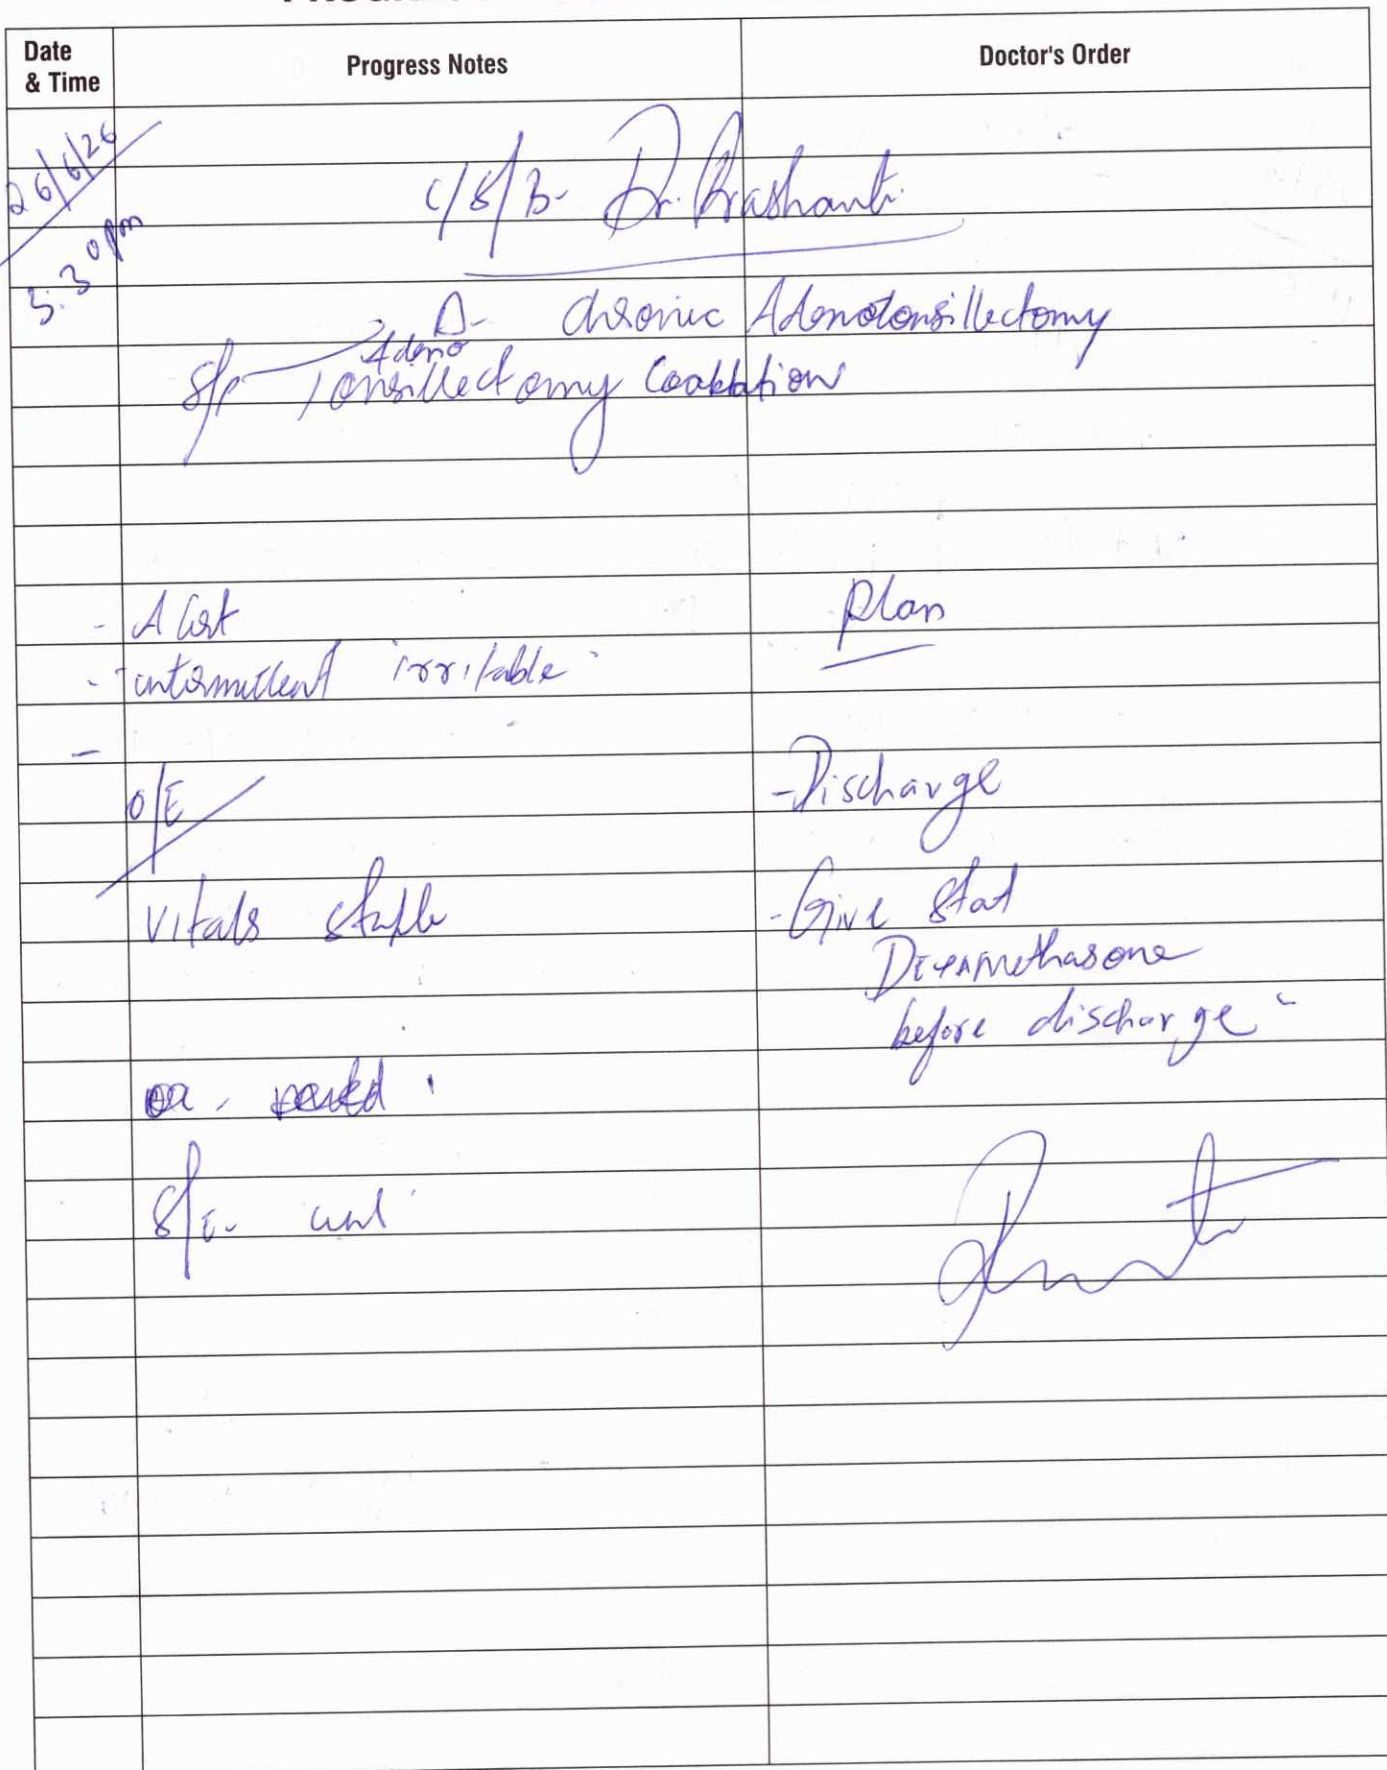 Date & Time
Progress Notes
Doctor's Order
26/6/26
5.30pm
C/S/B- Dr. Prashanti
D- chronic Adenotonsillectomy
Adeno
S/P Tonsillectomy Coablation
- Alert
Plan
- intermittent irritable
-
O/E
- Discharge
Vitals stable
- Give stat
Dexamethasone
before discharge
S/E-